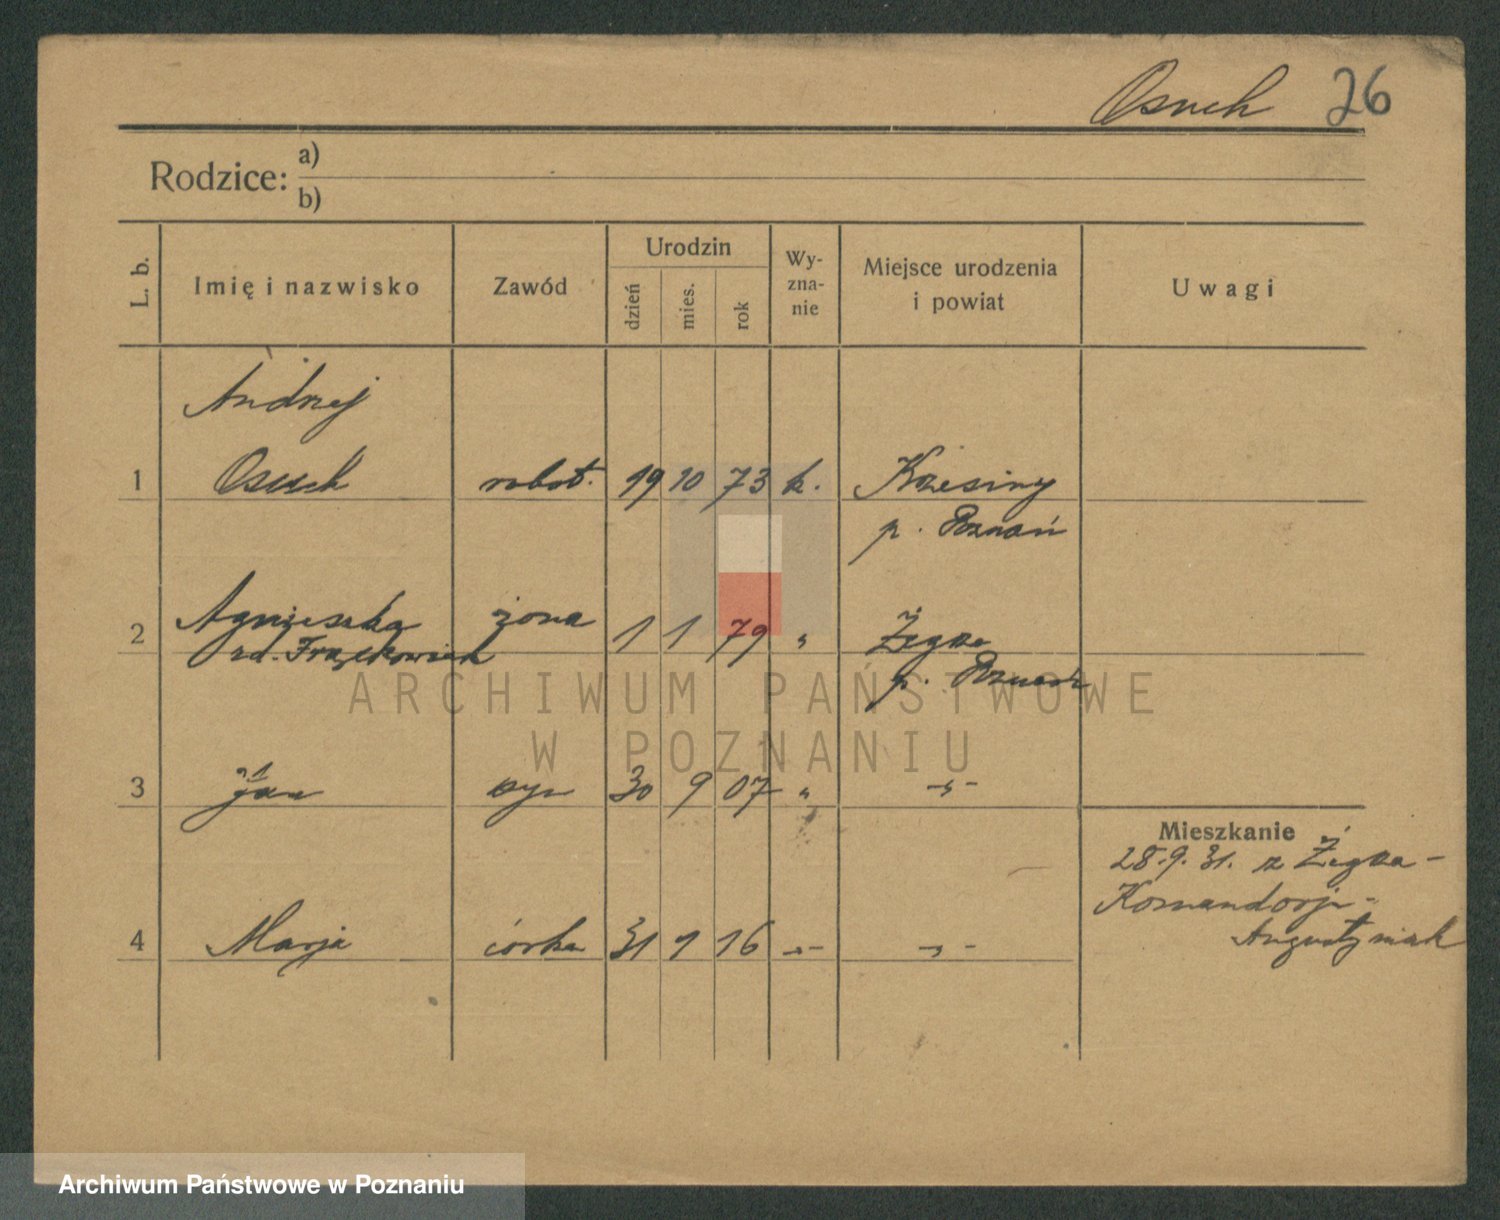 Osuch 26
Rodzice: a)
b)
L. b. Imię i nazwisko Zawód Urodzin dzień mies. rok Wy-zna-nie Miejsce urodzenia i powiat Uwagi
Andrzej
1 Osuch robot. 19 10 73 k. Krzesiny
p. Poznań
2 Agnieszka żona 1 1 79 " Żegrze
zd. Frąckowiak p. Poznań
3 Jan syn 30 9 07 " -"-
Mieszkanie
28.9.31. z Żegrza-
Komandorja-
Augustyniak
4 Marja córka 31 1 16 -"- -"-
ARCHIWUM PAŃSTWOWE
W POZNANIU
Archiwum Państwowe w Poznaniu